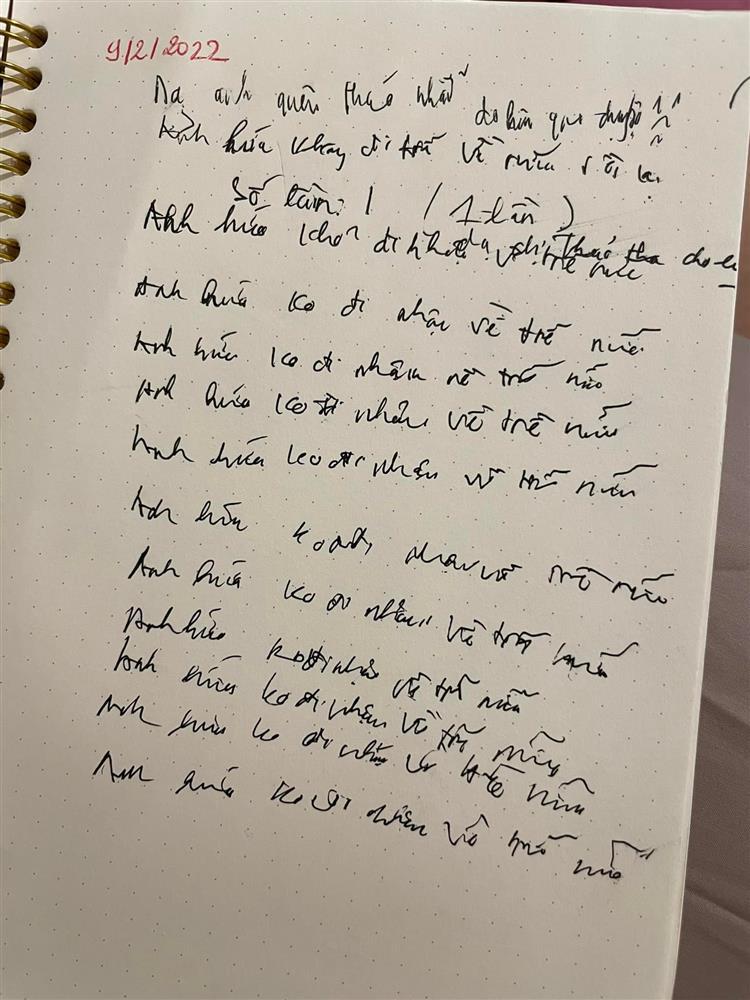 9/2/2022
Dạ anh quên tháo nhẫn
Anh hứa không đi trễ về nữa
Số lần: 1 (1 lần)
Anh hứa về trễ nữa
Anh hứa ko đi nhậu về trễ nữa
Anh hứa ko đi nhậu về trễ nữa
Anh hứa ko đi nhậu về trễ nữa
Anh hứa ko đi nhậu về trễ nữa
Anh hứa ko đi nhậu về trễ nữa
Anh hứa ko đi nhậu về trễ nữa
Anh hứa ko đi nhậu về trễ nữa
Anh hứa ko đi nhậu về trễ nữa
Anh hứa ko đi nhậu về trễ nữa
Anh hứa ko đi nhậu về trễ nữa